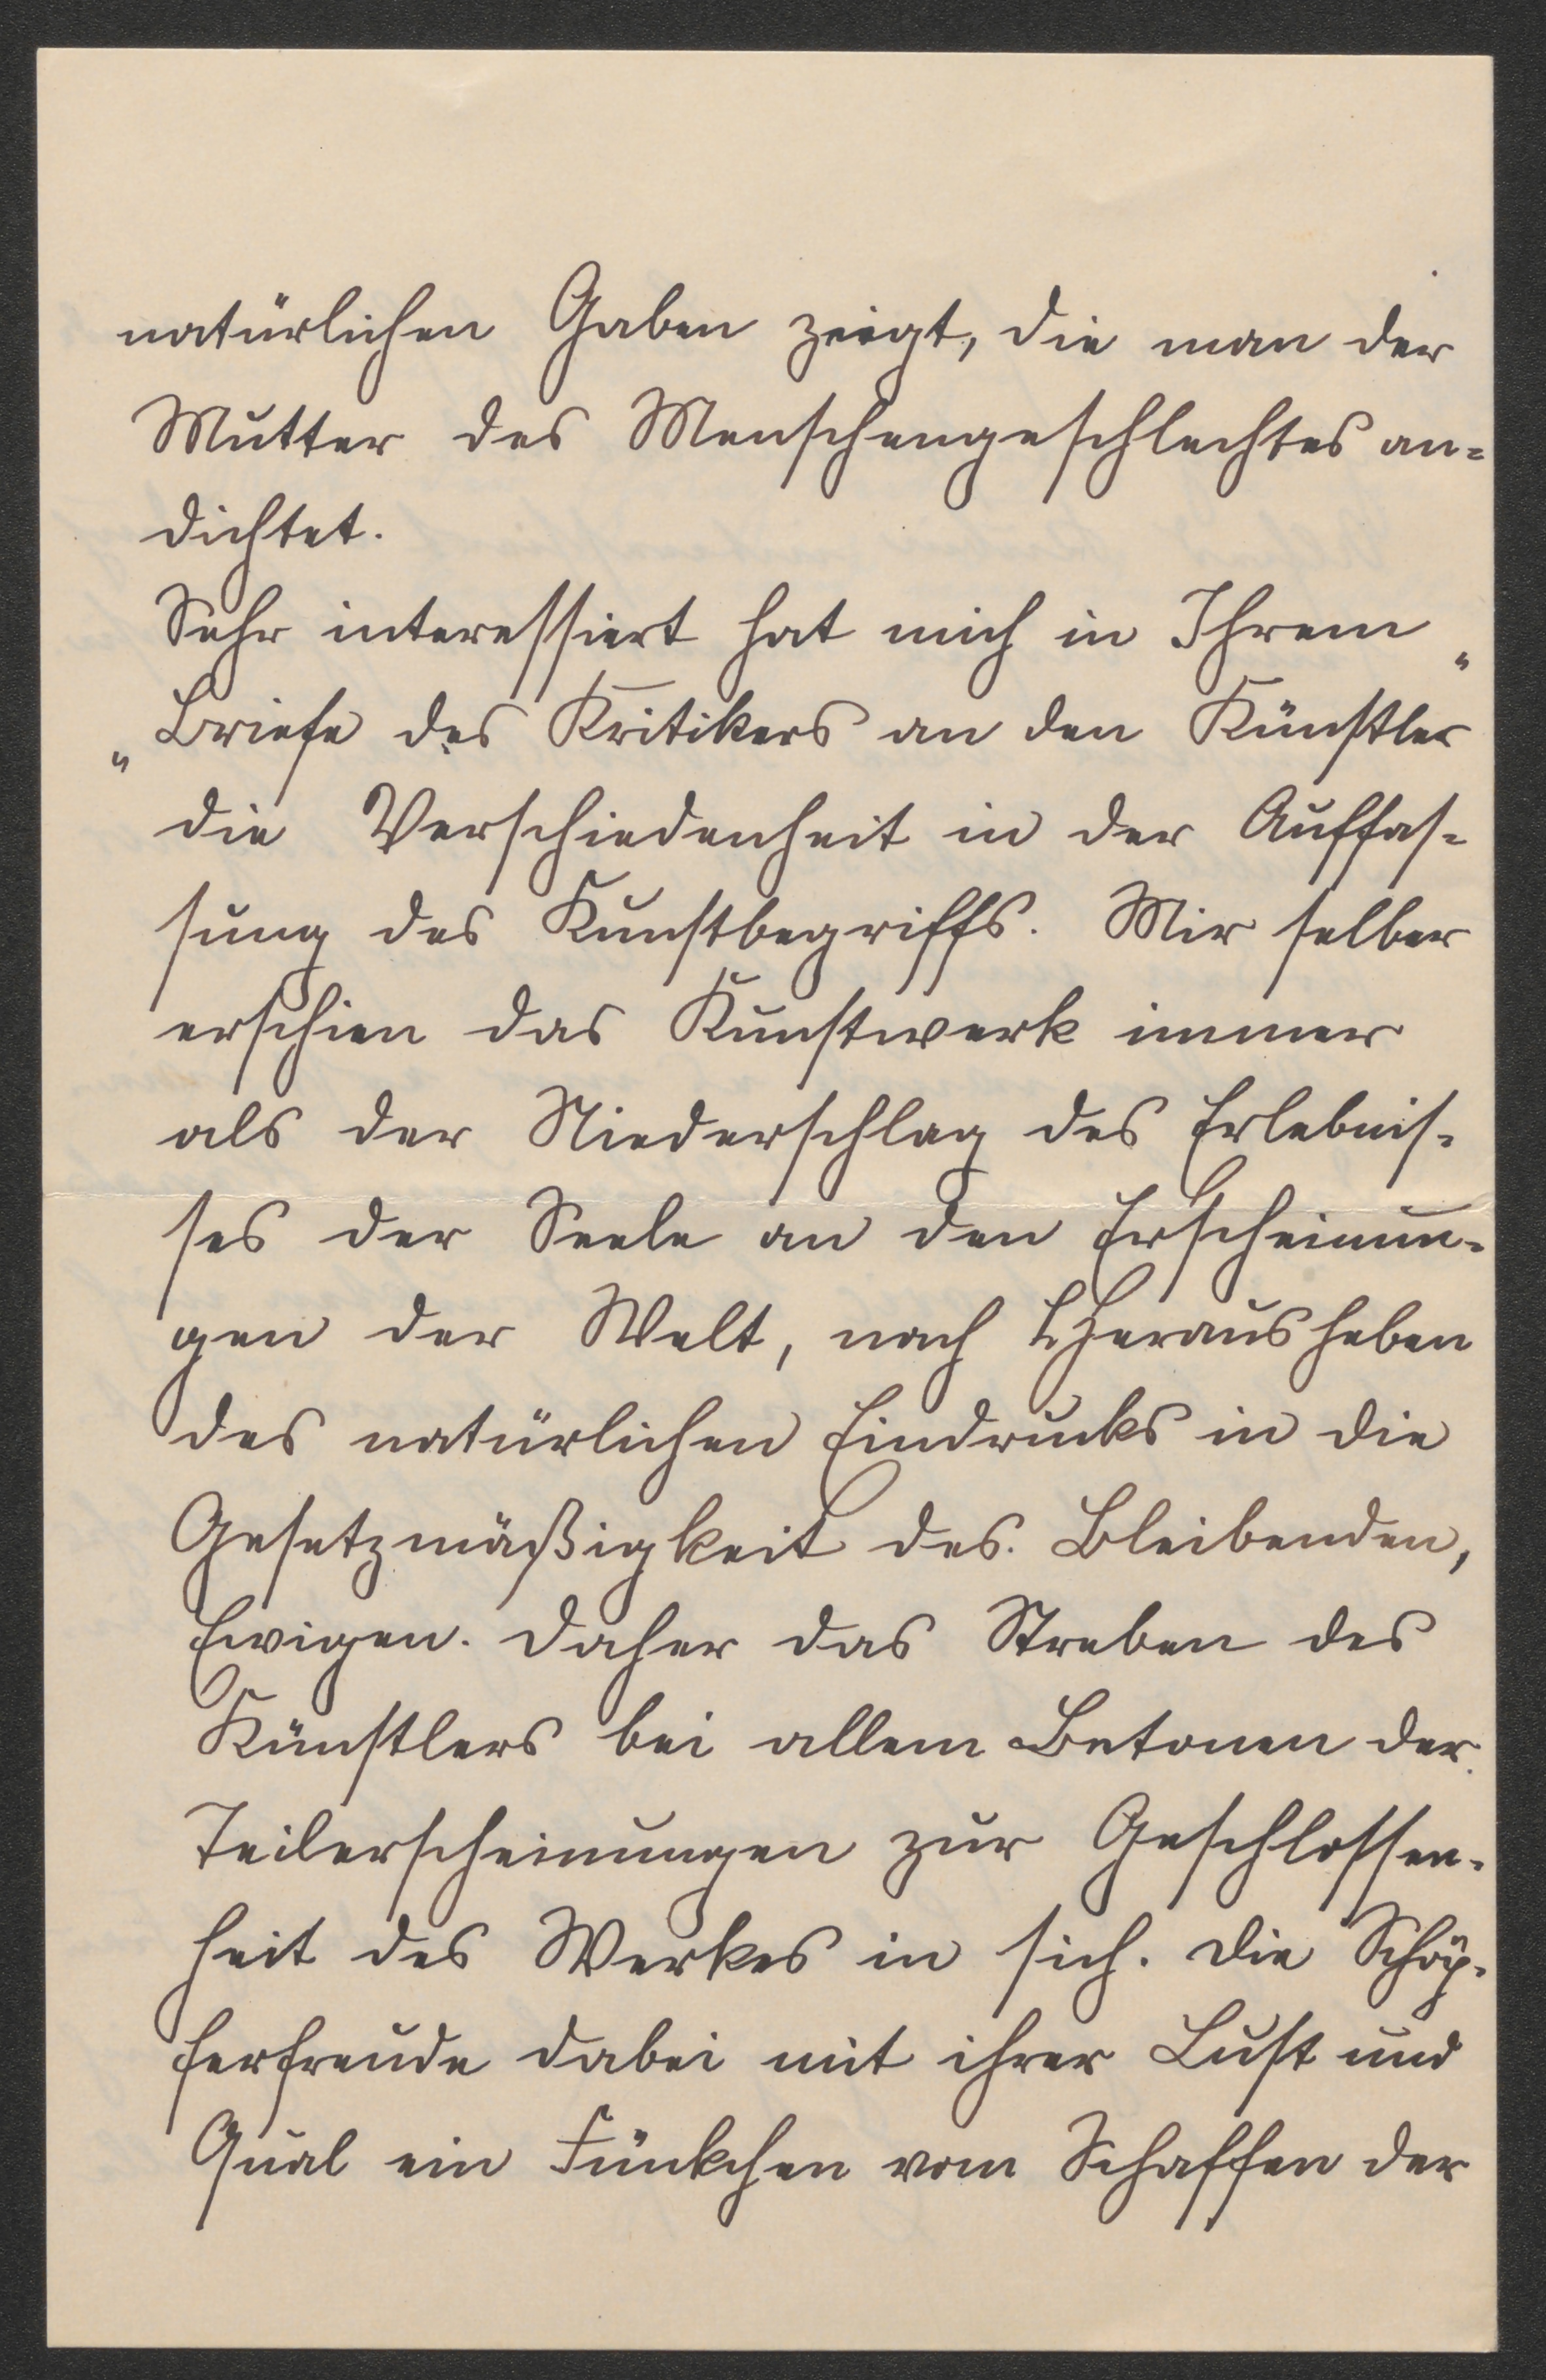 natürlichen Gaben zeigt, die man der
Mutter des Menschengeschlechtes an=
dichtet.
Sehr interessiert hat mich in Ihrem „
„Briefe des Kritikers an den Künstler
die Verschiedenheit in der Auffas-
sung des Kunstbegriffs. Mir selber
erschien das Kunstwerk immer
als der Niederschlag des Erlebnis-
ses der Seele an den Erscheinun-
gen der Welt, nach Herausheben
des natürlichen Eindrucks in die
Gesetzmäßigkeit des Bleibenden,
Ewigen. Daher das Streben des
Künstlers bei allem Betonen der
Teilerscheinungen zur Geschlossen-
heit des Werkes in sich. Die Schöp-
ferfreude dabei mit ihrer Lust und
Qual ein Fünkchen vom Schaffen der